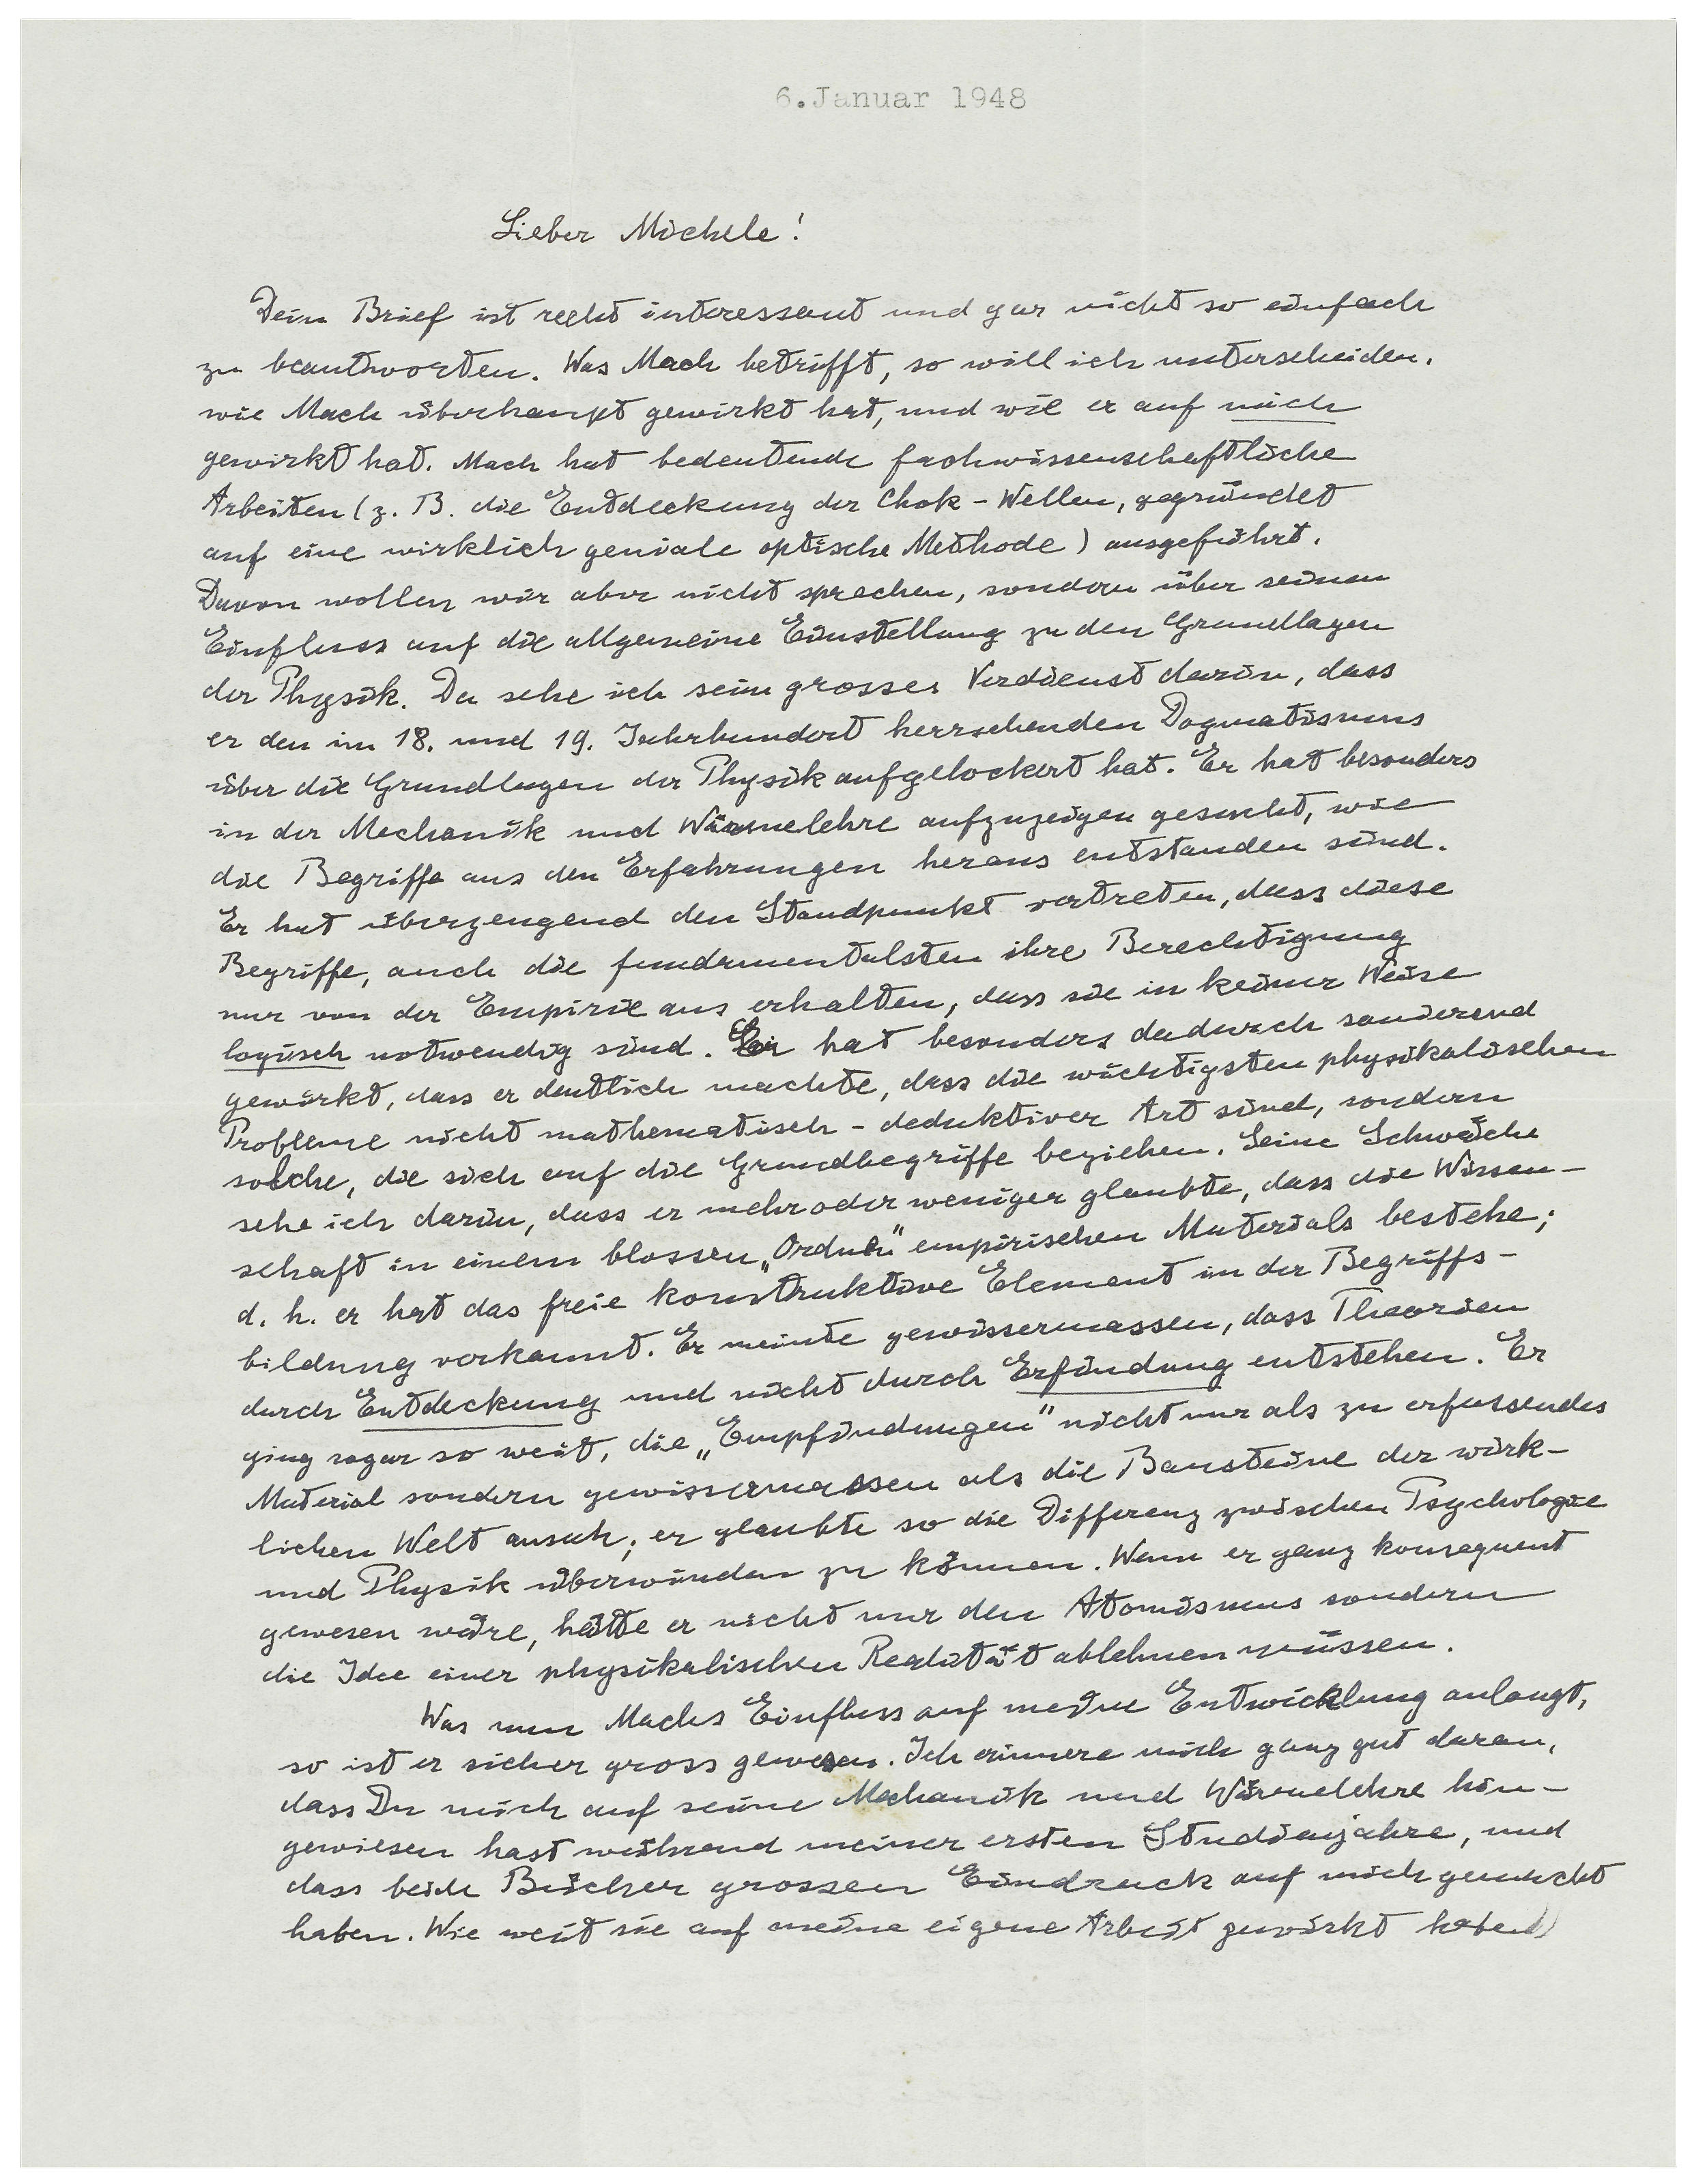 6.Januar 1948
Lieber Michele!
Dein Brief ist recht interessant und gar nicht so einfach
zu beantworten. Was Mach betrifft, so will ich unterscheiden,
wie Mach überhaupt gewirkt hat, und wie er auf mich
gewirkt hat. Mach hat bedeutende fachwissenschaftliche
Arbeiten (z. B. die Entdeckung der Chok-Wellen, gegründet
auf eine wirklich geniale optische Methode) ausgeführt.
Davon wollen wir aber nicht sprechen, sondern über seinen
Einfluss auf die allgemeine Einstellung zu den Grundlagen
der Physik. Da sehe ich sein grosses Verdienst darin, dass
er den im 18. und 19. Jahrhundert herrschenden Dogmatismus
über die Grundlagen der Physik aufgelockert hat. Er hat besonders
in der Mechanik und Wärmelehre aufzuzeigen gesucht, wie
die Begriffe aus den Erfahrungen heraus entstanden sind.
Er hat überzeugend den Standpunkt vertreten, dass diese
Begriffe, auch die fundamentalsten ihre Berechtigung
nur von der Empirie aus erhalten, dass sie in keiner Weise
logisch notwendig sind. Er hat besonders dadurch sanierend
gewirkt, dass er deutlich machte, dass die wichtigsten physikalischen
Probleme nicht mathematisch-deduktiver Art sind, sondern
solche, die sich auf die Grundbegriffe beziehen. Seine Schwäche
sehe ich darin, dass er mehr oder weniger glaubte, dass die Wissen-
schaft in einem blossen „Ordnen" empirischen Materials bestehe;
d. h. er hat das freie konstruktive Element in der Begriffs-
bildung verkannt. Er meinte gewissermassen, dass Theorien
durch Entdeckung und nicht durch Erfindung entstehen. Er
ging sogar so weit, die „Empfindungen" nicht nur als zu erfassendes
Material sondern gewissermassen als die Bausteine der wirk-
lichen Welt ansah; er glaubte so die Differenz zwischen Psychologie
und Physik überwinden zu können. Wenn er ganz konsequent
gewesen wäre, hätte er nicht nur den Atomismus sondern
die Idee einer physikalischen Realität ablehnen müssen.
Was nun Machs Einfluss auf meine Entwicklung anlangt,
so ist er sicher gross gewesen. Ich erinnere mich ganz gut daran,
dass Du mich auf seine Mechanik und Wärmelehre hin-
gewiesen hast während meiner ersten Studienjahre, und
dass beide Bücher grossen Eindruck auf mich gemacht
haben. Wie weit sie auf meine eigene Arbeit gewirkt haben